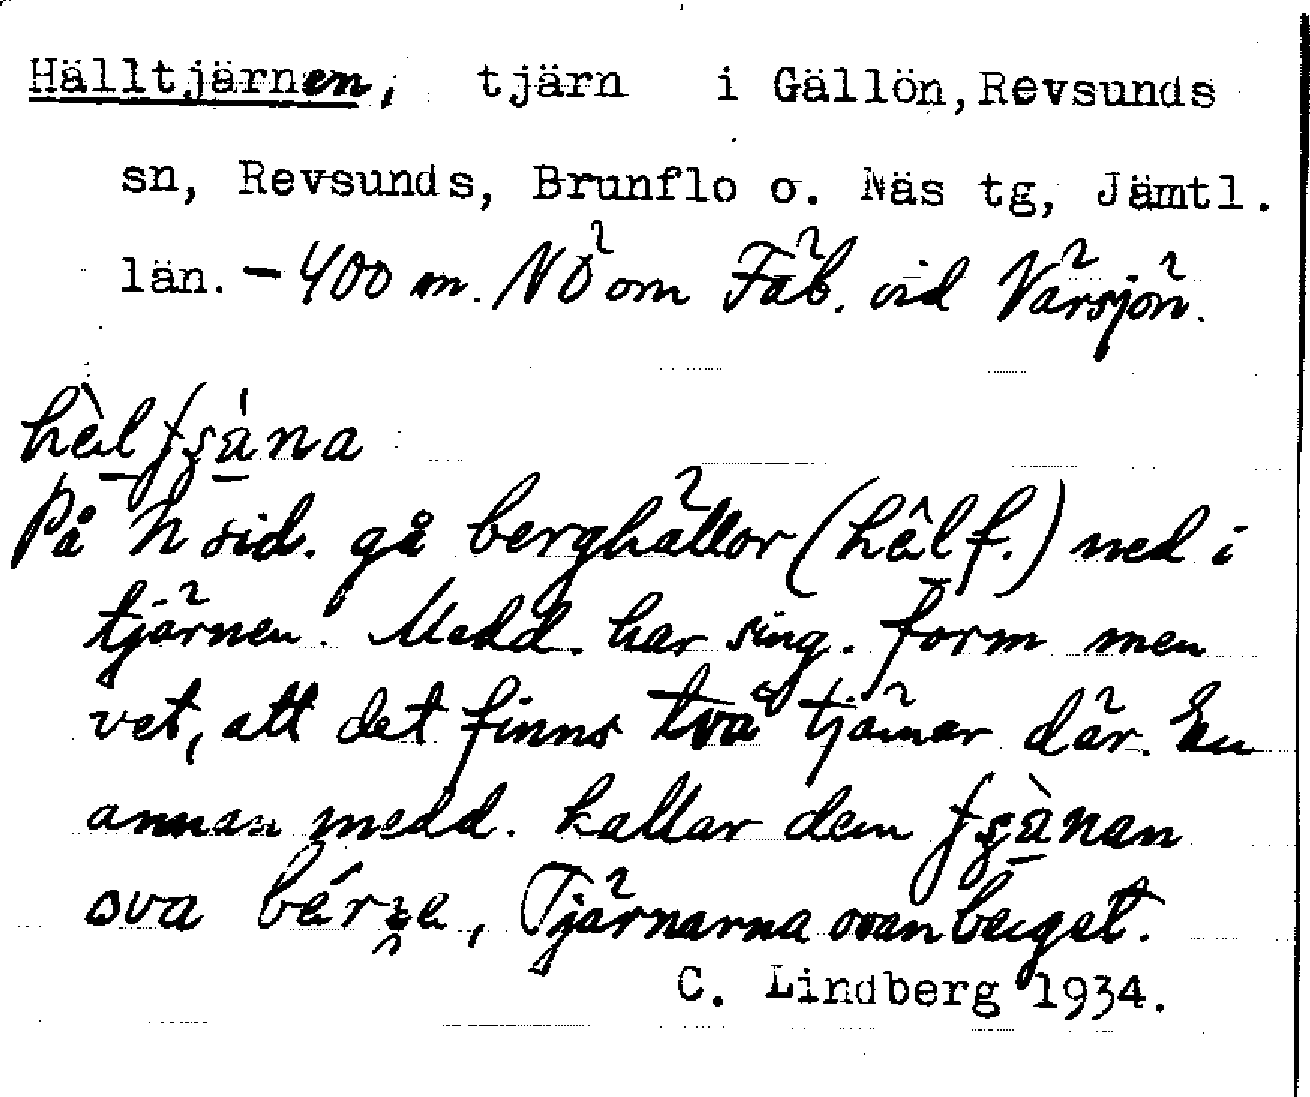 Hälltjärnen, tjärn i Gällön, Revsunds
sn, Revsunds, Brunflo o. Näs tg, Jämtl.
län. - 400 m. NÖ om Fäb. vid Värsjön.
På N sid. gå berghällor (hêl f.) ned i
tjärnen. Medd. har sing. form men
vet, att det finns två tjärnar där. En
annan medd. kallar dem
ova Tjärnarna ovan berget.
C. Lindberg 1934.